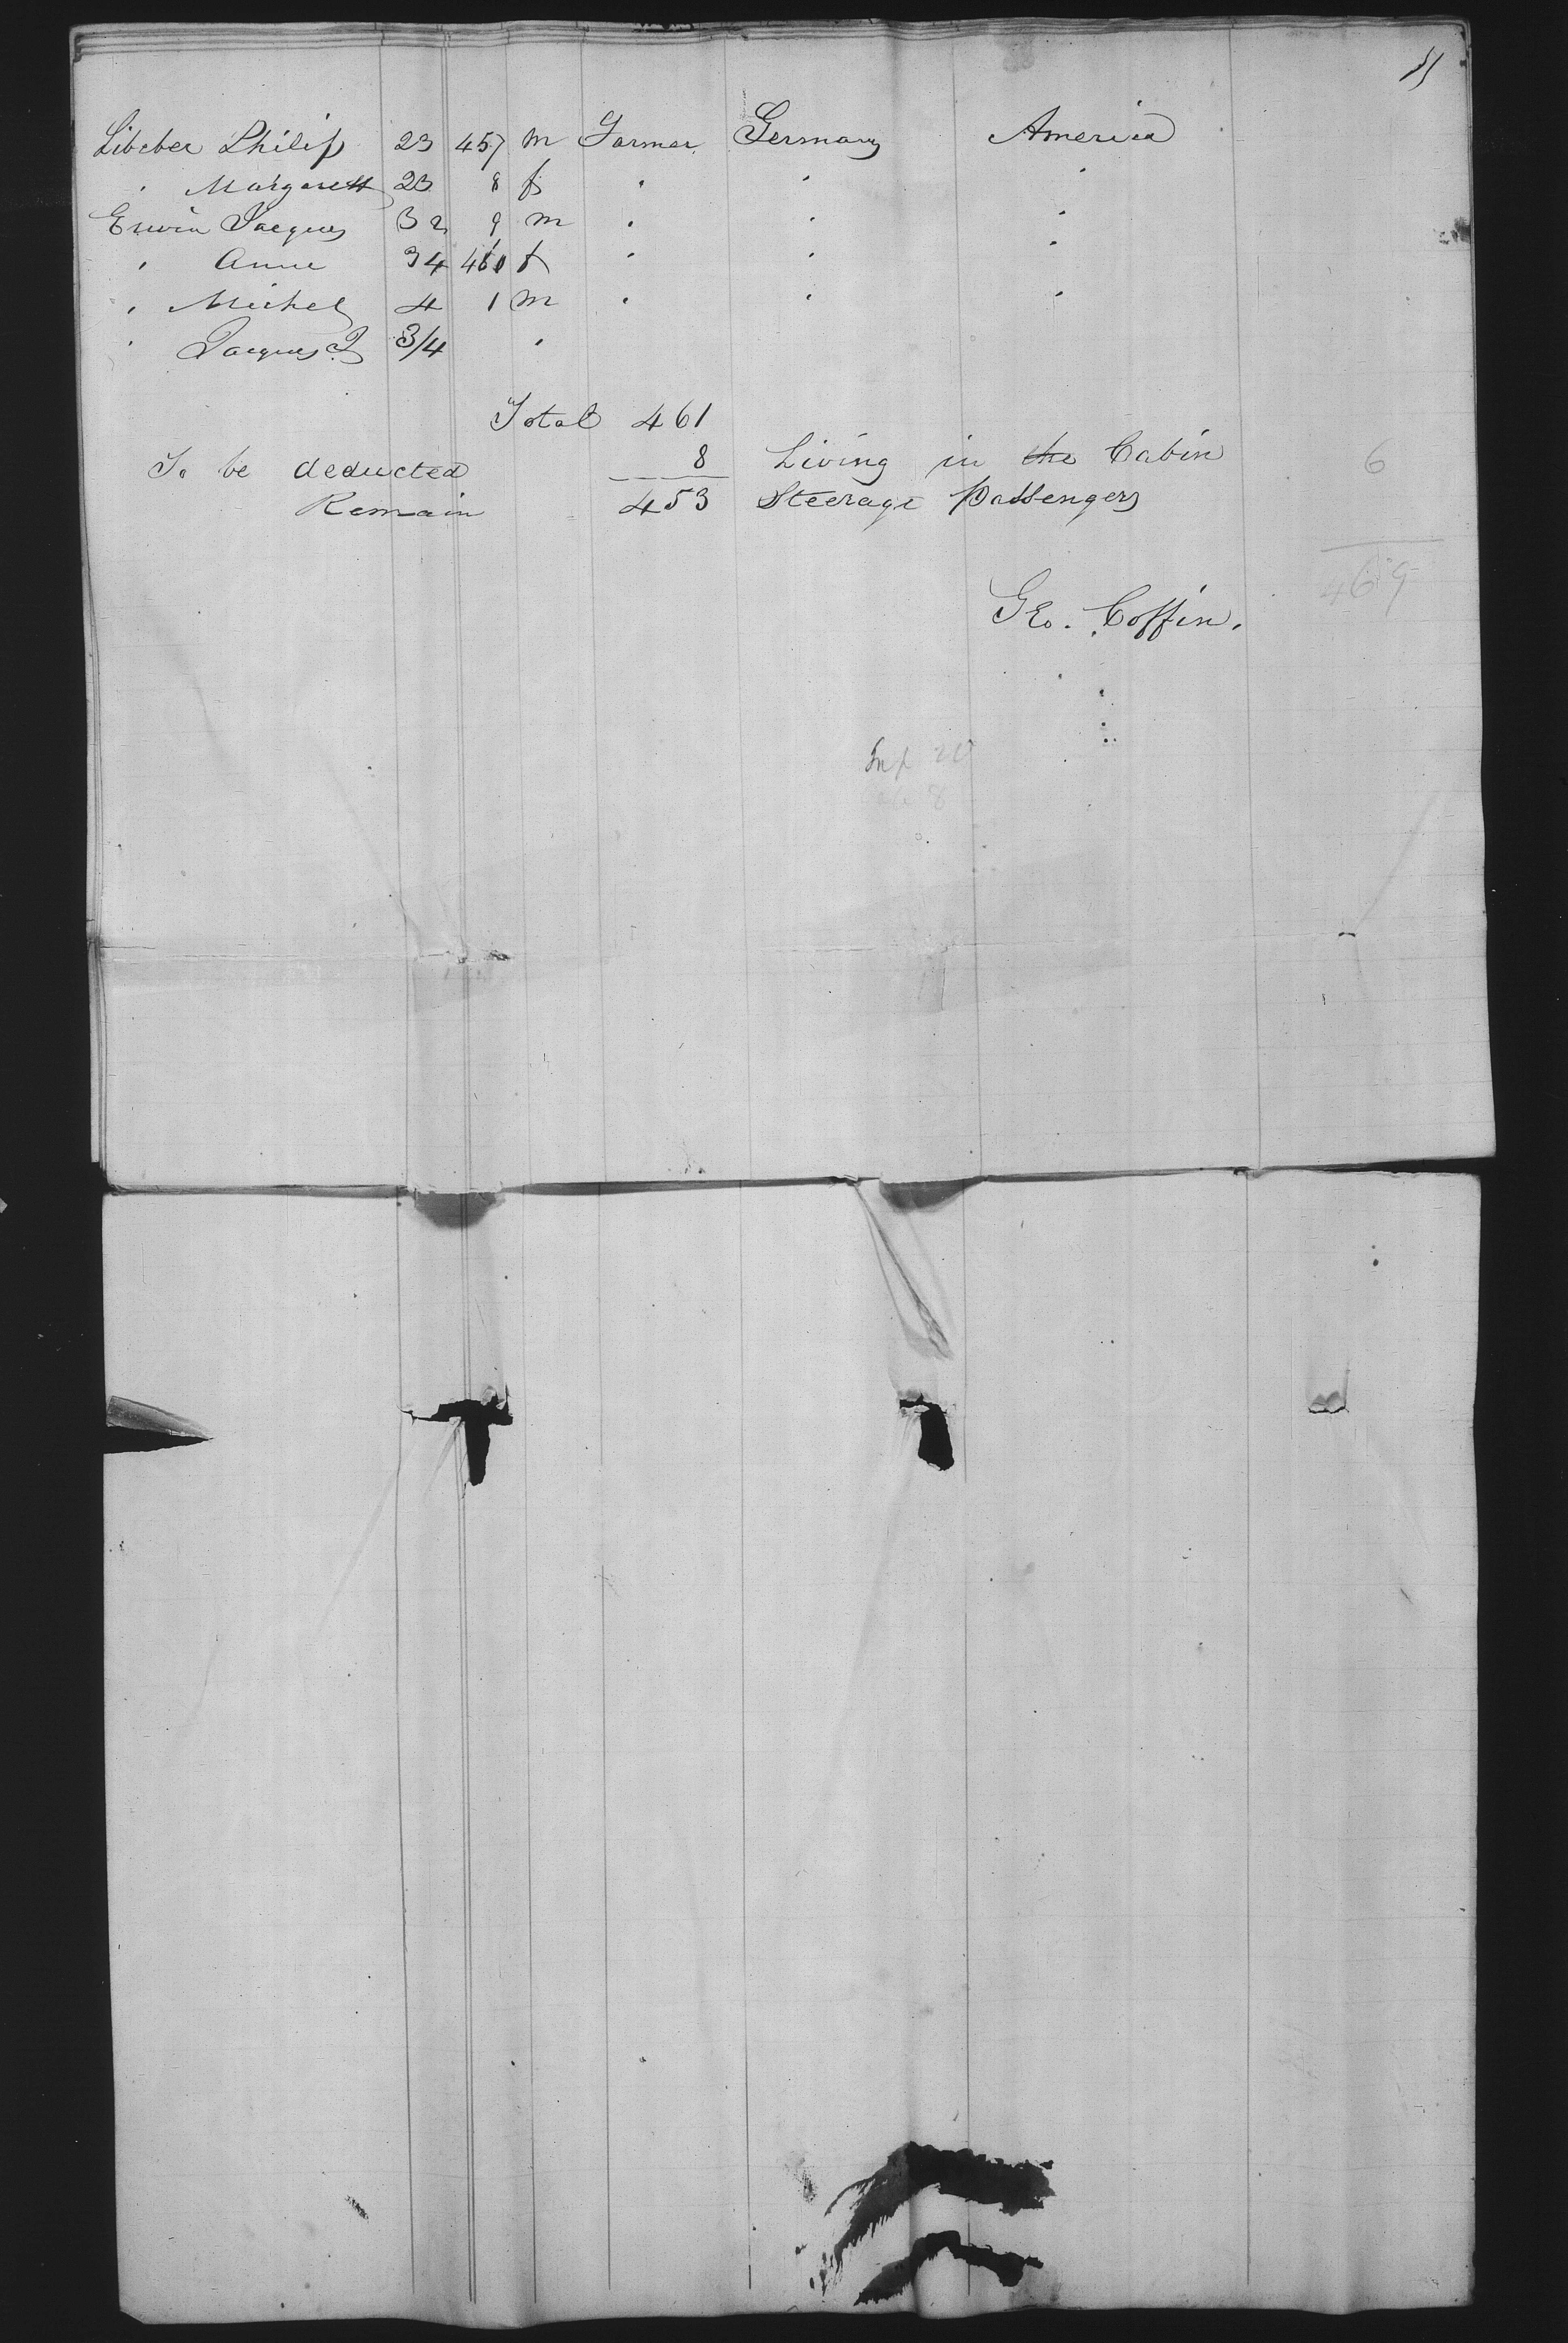 11
Libeber Philip 23 457 m Farmer Germany America
" Margarett 23 8 f " " "
Erwin Jacques 32 9 m " " "
" Anne 34 460 f " " "
" Michel 4 1 m " " "
" Jacques J 3/4 "
Total 461
To be deducted 8 Living in the Cabin 6
Remain 453 Steerage Passengers
469
Geo. Coffin.
Inf 20
8